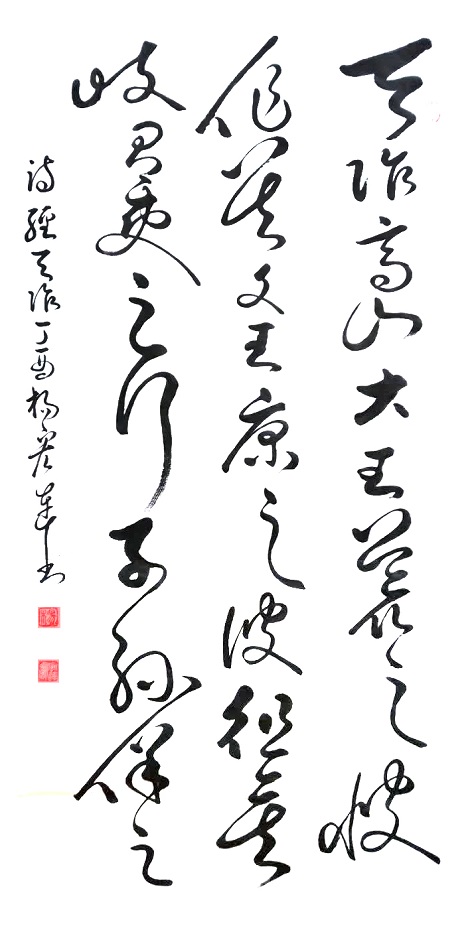 天作高山大王荒之彼
作矣文王康之彼徂矣
岐有夷之行子孫保之
詩經天作丁酉楊書